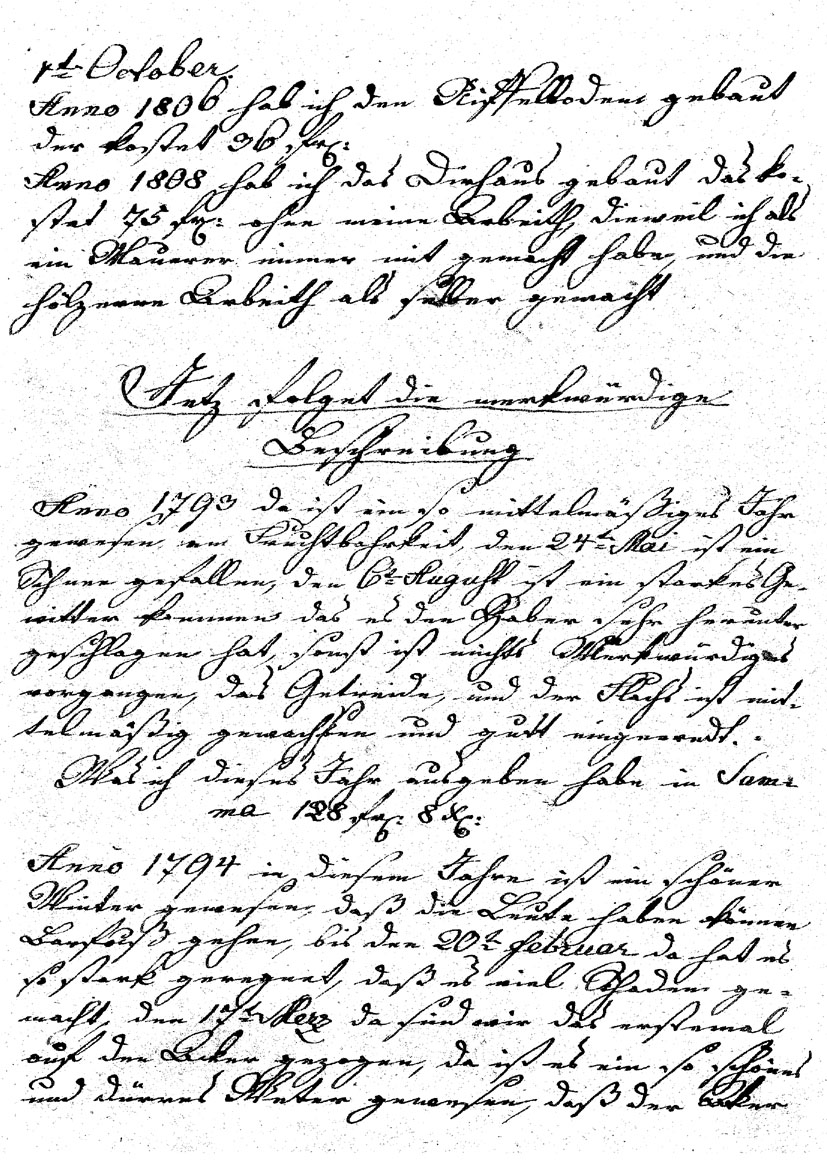 1t October.
Anno 1806 hab ich den Riffelboden gebaut
der kostet 36 fr:
Anno 1808 hab ich das Dirhaus gebaut das ko-
stet 75 fr: ohne meine Arbeith, dieweil ich als
ein Mauerer immer mit gemacht habe, und die
hölzerne Arbeith als selber gemacht
Jetz folget die merkwürdige
Beschreibung
Anno 1793 da ist ein so mittelmäßiges Jahr
gewesen, am Fruchtbahrkeit, den 24tn Mai ist ein
Schnee gefallen, den 6tn August ist ein starkes Ge-
witter kommen das es den Haber sehr herunter
geschlagen hat, sonst ist nichts Merkwürdiges
vorgangen, das Getreide, und der Flachs ist mit-
telmäßig gewachsen und gutt eingeerndt.
Was ich dieses Jahr ausgeben habe in Sum-
ma 128 fr: 8 X:
Anno 1794 in diesem Jahre ist ein schöner
Winter gewesen, daß die Leute haben können
Barfuß gehen, bis den 20t februar da hat es
so stark geregnet, daß es viel Schaden ge-
macht, den 17t Merz da sind wir das erstemal
auf den Acker gezogen, da ist es ein so schönes
und dürres Wetter gewesen, daß der Acker